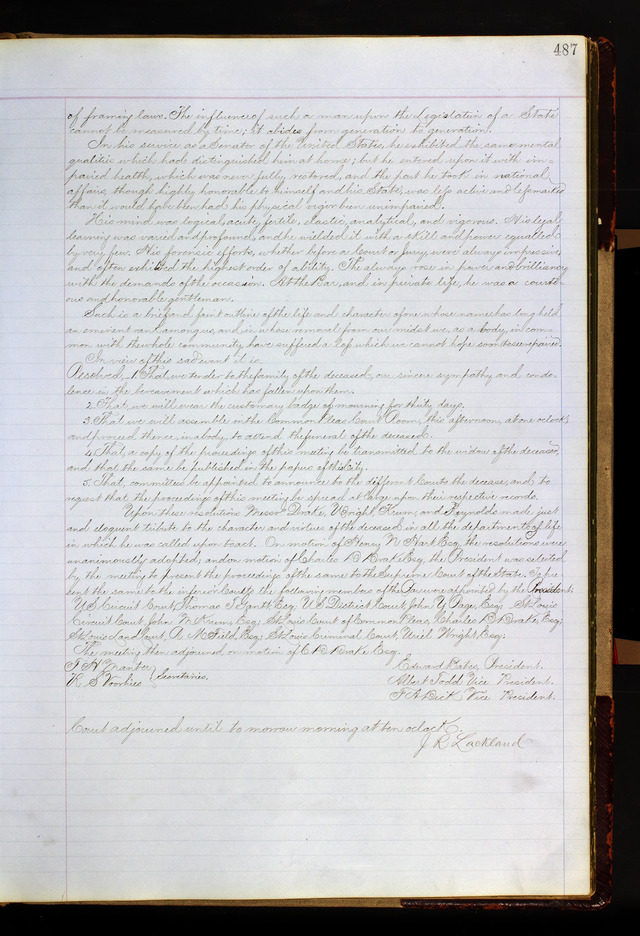 487
of framing laws. The influence of such a man upon the Legislation of a State
cannot be measured by time; it abides from generation to generation.
In his service as a Senator of the United States, he exhibited the same mental
qualities which had distinguished him at home; but he entered upon it with im-
paired health, which was never fully restored, and the part he took in national
affairs, though highly honorable to himself and his State, was less active and less marked
than it would have been had his physical vigor been unimpaired.
His mind was logical, acute, fertile, elastic, analytical, and vigorous. His legal
learning was varied and profound, and he wielded it with a skill and power equalled
by very few. His forensic efforts, whether before a Court or Jury, were always impressive,
and often exhibited the highest order of ability. He always rose in power and brilliancy
with the demands of the occasion. At the Bar, and in private life, he was a courte-
ous and honorable gentleman.
Such is a brief and faint outline of the life and character of one whose name has long held
an eminent rank among us, and in whose removal from our midst we, as a body, in com-
mon with the whole community, have suffered a loss which we cannot hope soon to see repaired.
In view of this sad event it is
Resolved, 1 That we tender to the family of the deceased, our sincere sympathy and condo-
lence in the bereavement which has fallen upon them.
2. That, we will wear the customary badge of mourning for thirty days.
3. That we will assemble in the Common Pleas Court Room, this afternoon, at one oclock,
and proceed thence, in a body, to attend the funeral of the deceased.
4. That, a copy of the proceedings of this meeting be transmitted to the widow of the deceased,
and that the same be published in the papers of this City.
5. That, committees be appointed to announce to the different Courts the decease, and to
request that the proceedings of this meeting be spread at large upon their respective records.
Upon these resolutions Messrs Drake, Wright, Krum, and Reynolds made just
and eloquent tribute to the character and virtues of the deceased in all the departments of life
in which he was called upon to act. On motion of Henry N Hart Esq, the resolutions were
unanimously adopted; and on motion of Charles D Drake Esq, the President was selected
by the meeting to present the proceedings of the same to the Supreme Court of the State. To pre-
sent the same to the inferior Courts the following members of the Bar were appointed by the President:
U S Circuit Court, Thomas T Gantt Esq; U S District Court, John Y Page, Esq; St Louis
Circuit Court, John M Krum, Esq; St Louis Court of Common Pleas, Charles D Drake, Esq;
St Louis Land Court, R M Field, Esq; St Louis Criminal Court, Uriel Wright, Esq;
The meeting then adjourned on motion of C D Drake Esq.
Edward Bates, President.
H S Voorhies } Secretaries.
Albert Todd Vice President.
F A Dick Vice President.
Court adjourned until to morrow morning at ten oclock.
J R Lackland